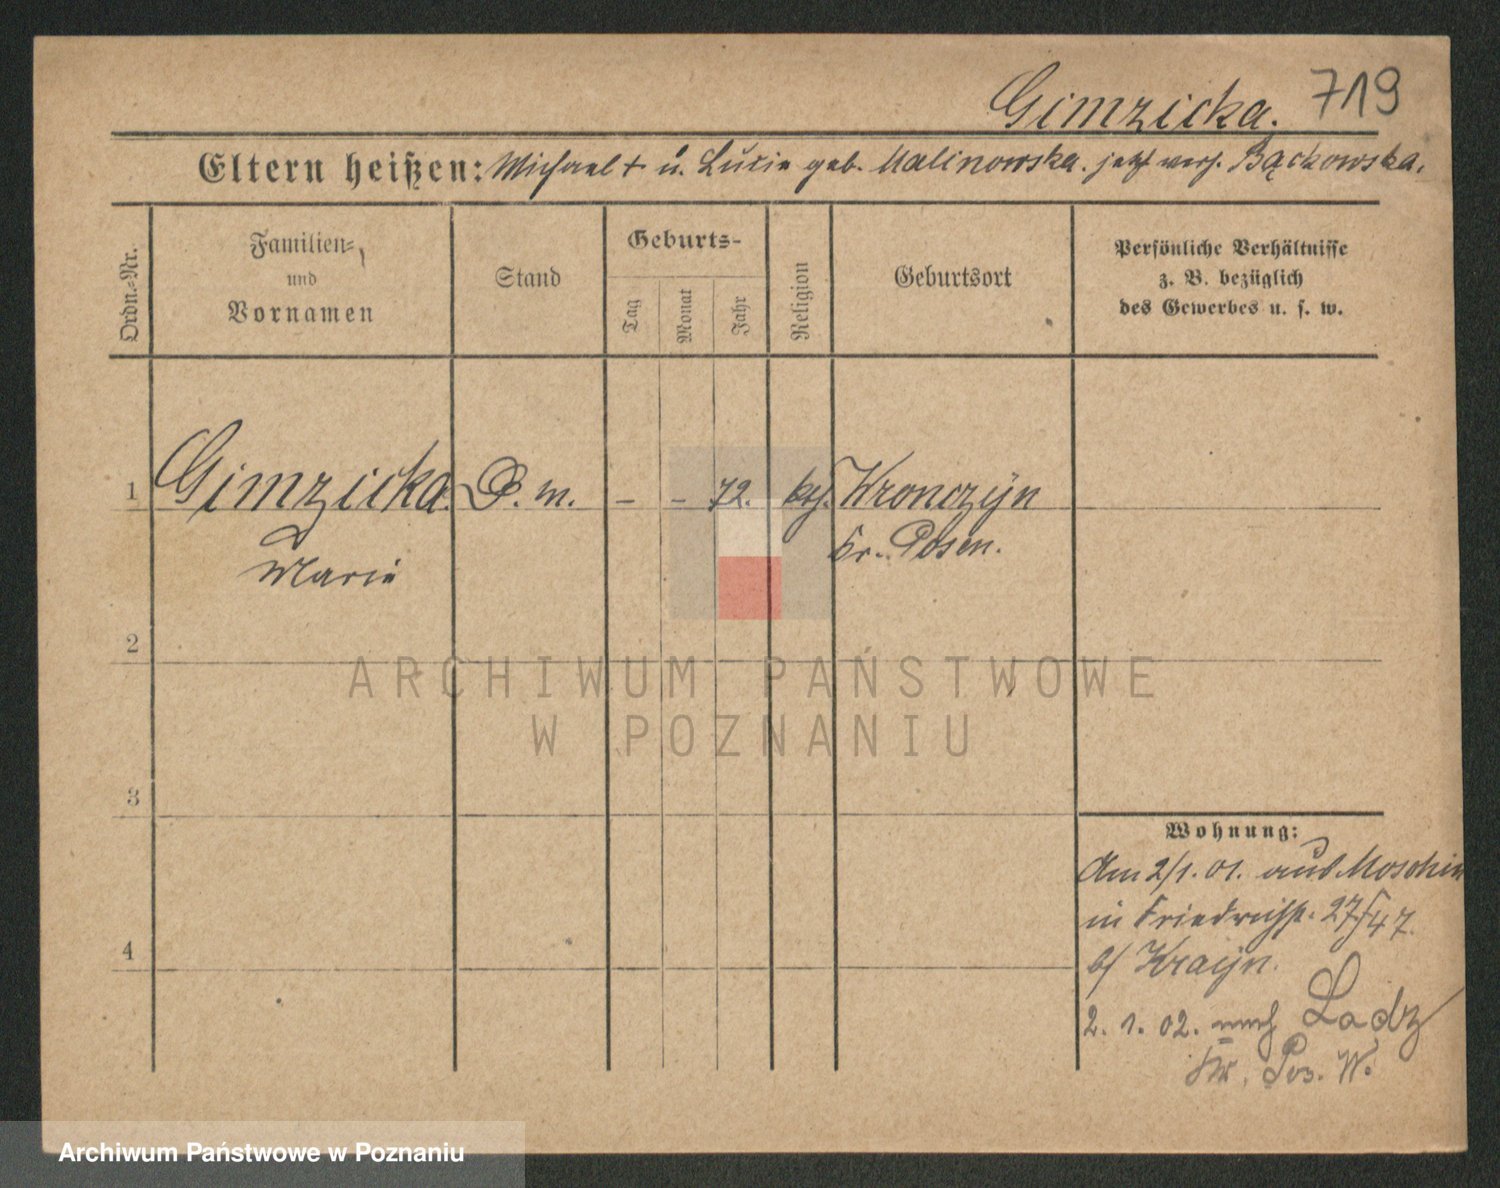 Gimzicka. 719
Eltern heißen: Michael † u. Lucie geb. Malinowska. jetzt verh. Bąckowska.
Ordn.-Nr.
Familien-
und
Vornamen
Stand
Geburts-
Tag
Monat
Jahr
Religion
Geburtsort
Persönliche Verhältnisse
z. B. bezüglich
des Gewerbes u. s. w.
1 Gimzicka D. m. – – 72. kth. Kronczyn
Marie Kr. Posen.
2
ARCHIWUM PAŃSTWOWE
W POZNANIU
3
Wohnung:
Am 2/1. 01. aus Moschin
in Friedrichst. 27/47.
4
b/ Krayn.
2. 1. 02. nach Lodz
Kr. Pos. W.
Archiwum Państwowe w Poznaniu